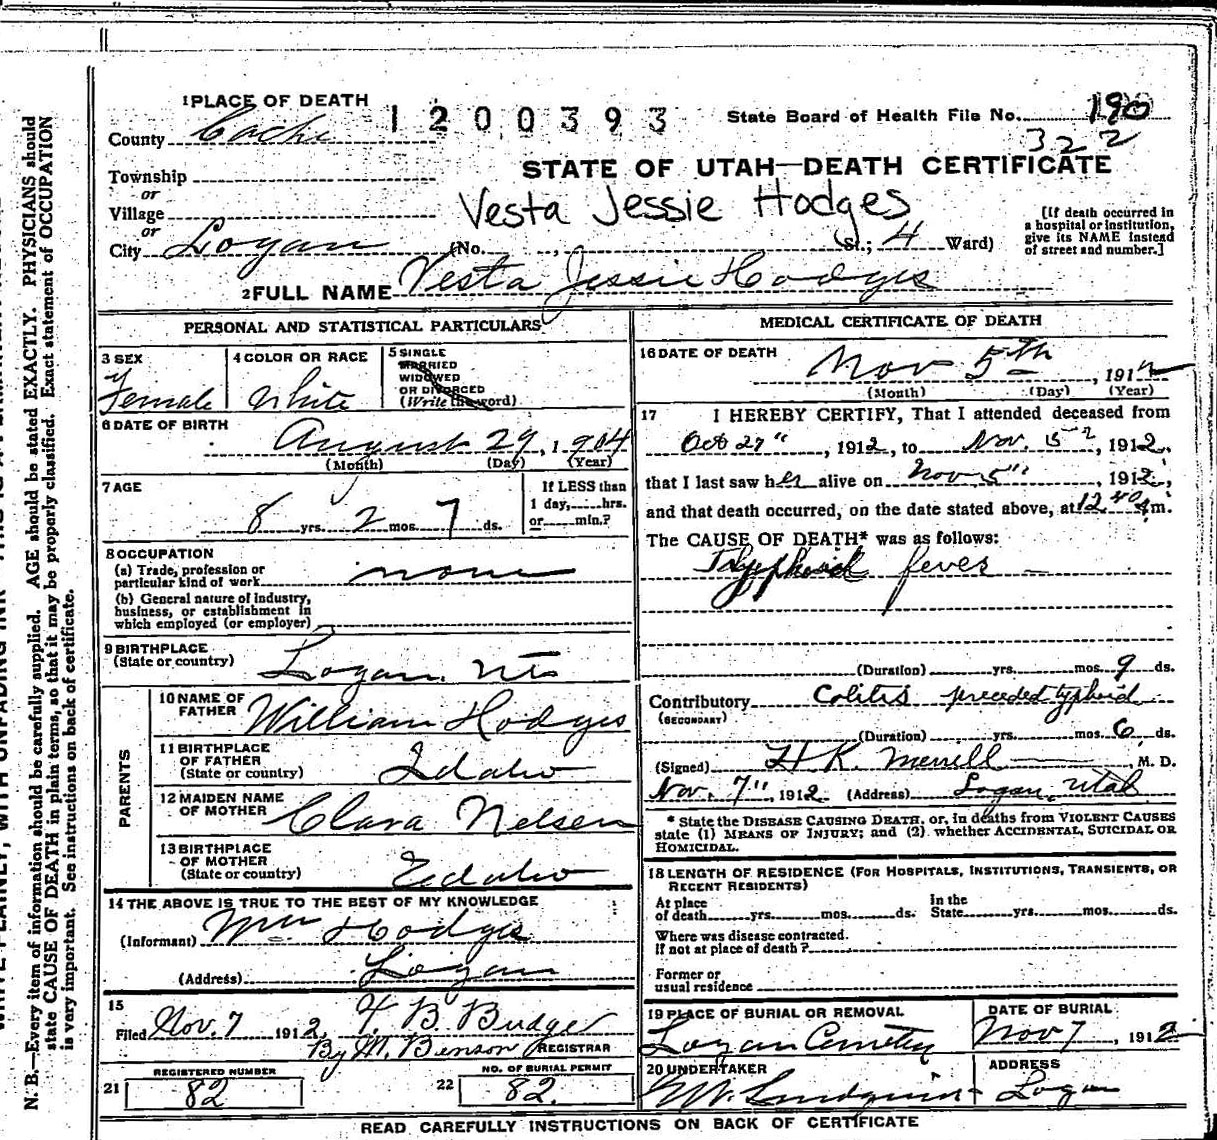 1 PLACE OF DEATH
1200393
State Board of Health File No. 190
County Cache
322
STATE OF UTAH—DEATH CERTIFICATE
Township
or
Village
or
Vesta Jessie Hodges
[If death occurred in
a hospital or institution,
give its NAME instead
of street and number.]
City Logan (No. , St.; 4 Ward)
2 FULL NAME Vesta Jessie Hodges
PERSONAL AND STATISTICAL PARTICULARS
3 SEX
Female
4 COLOR OR RACE
White
5 SINGLE
MARRIED
WIDOWED
OR DIVORCED
(Write the word)
6 DATE OF BIRTH
August 29, 1904
(Month) (Day) (Year)
7 AGE
8 yrs. 2 mos. 7 ds.
If LESS than
1 day, hrs.
or min.?
8 OCCUPATION
(a) Trade, profession or
particular kind of work none
(b) General nature of industry,
business, or establishment in
which employed (or employer)
9 BIRTHPLACE
(State or country) Logan
PARENTS
10 NAME OF
FATHER William Hodges
11 BIRTHPLACE
OF FATHER
(State or country) Idaho
12 MAIDEN NAME
OF MOTHER Clara Nelsen
13 BIRTHPLACE
OF MOTHER
(State or country) Idaho
14 THE ABOVE IS TRUE TO THE BEST OF MY KNOWLEDGE
(Informant) Hodges
(Address) Logan
15
Filed Nov. 7 1912, F. B. Budge
By M. Benson REGISTRAR
21 REGISTERED NUMBER
82
22 NO. OF BURIAL PERMIT
82.
MEDICAL CERTIFICATE OF DEATH
16 DATE OF DEATH
Nov 5th, 1912
(Month) (Day) (Year)
17 I HEREBY CERTIFY, That I attended deceased from
Oct 27", 1912, to Nov. 5, 1912,
that I last saw her alive on Nov 5", 1912,
and that death occurred, on the date stated above, at 12 40 m.
The CAUSE OF DEATH* was as follows:
Typhoid fever
(Duration) yrs. mos. 9 ds.
Contributory Colitis preceded typhoid
(SECONDARY)
(Duration) yrs. mos. 6 ds.
(Signed) H K. Merrill, M. D.
Nov. 7", 1912 (Address) Logan, Utah
* State the DISEASE CAUSING DEATH, or, in deaths from VIOLENT CAUSES
state (1) MEANS OF INJURY; and (2) whether ACCIDENTAL, SUICIDAL OR
HOMICIDAL.
18 LENGTH OF RESIDENCE (FOR HOSPITALS, INSTITUTIONS, TRANSIENTS, OR
RECENT RESIDENTS)
At place
of death yrs. mos. ds.
In the
State yrs. mos. ds.
Where was disease contracted.
If not at place of death?
Former or
usual residence
19 PLACE OF BURIAL OR REMOVAL
Logan Cemetery
DATE OF BURIAL
Nov 7, 1912
20 UNDERTAKER
ADDRESS
Logan
READ CAREFULLY INSTRUCTIONS ON BACK OF CERTIFICATE
N. B.—Every item of information should be carefully supplied. AGE should be stated EXACTLY. PHYSICIANS should
state CAUSE OF DEATH in plain terms, so that it may be properly classified. Exact statement of OCCUPATION
is very important. See instructions on back of certificate.